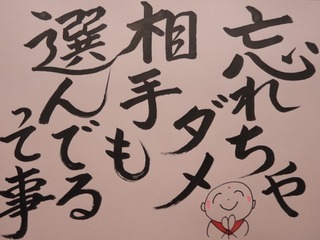 忘れちゃ
ダメ
相手も
選んでる
って事